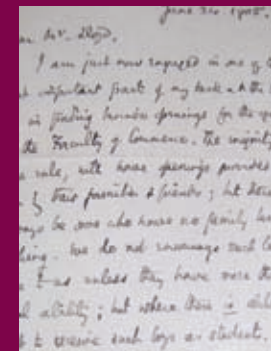 June 20. 1905.
Mr. Lloyd,
I am just now engaged in one of t
important parts of my task at the
in finding business openings for the
the Faculty of Commerce. The majority
rule, will have openings provided
by their families & friends; but there
be some who have no family
We do not encourage such
to us unless they have more th
ability; but where there is
to receive such boys as students.